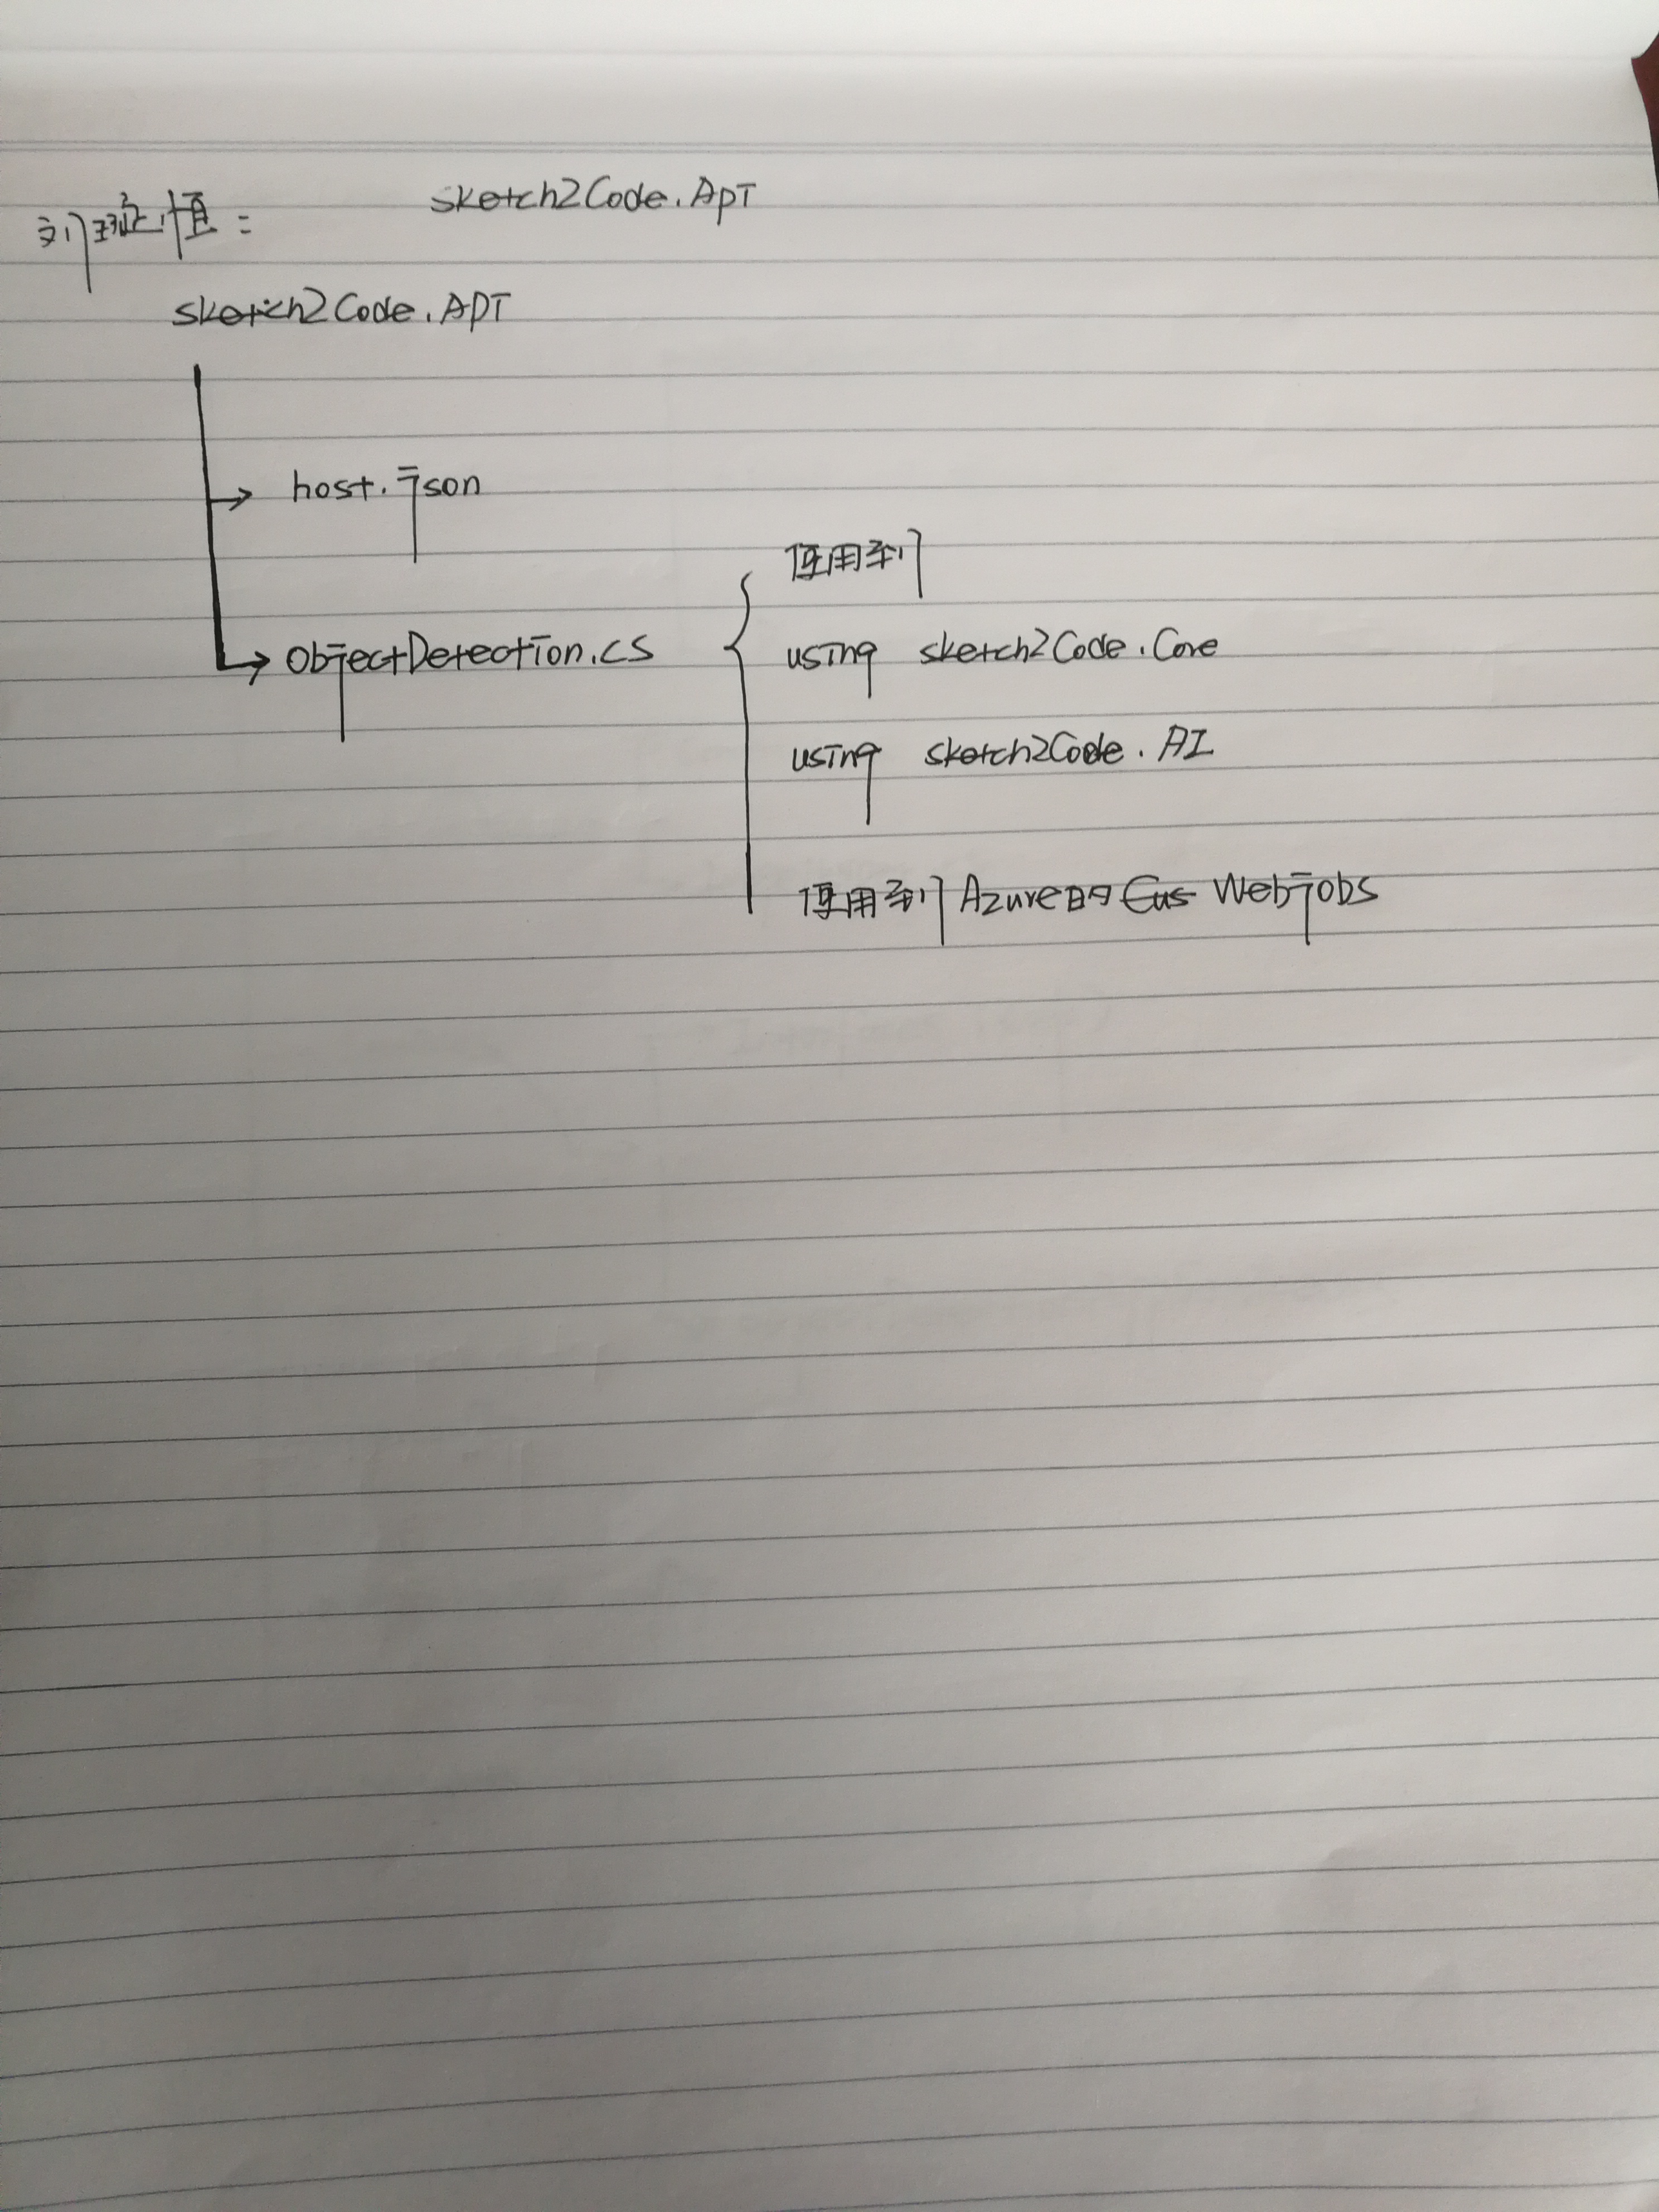 sketch2Code.ApI
刘琼恒:
sketch2Code.API
host.json
objectDetection.cs
使用到
using sketch2Code.Core
using sketch2Code.AI
使用到Azure的 Webjobs